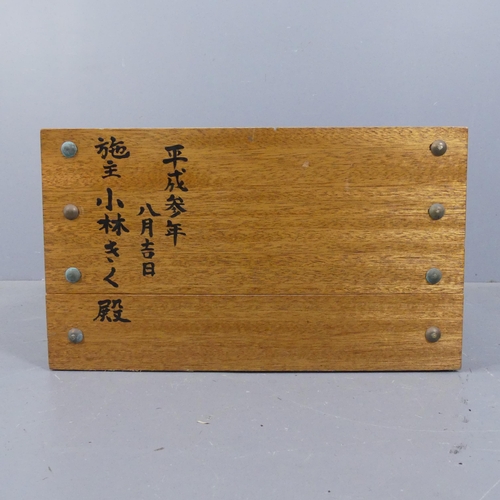 平成参年
八月吉日
施主 小林きく 殿